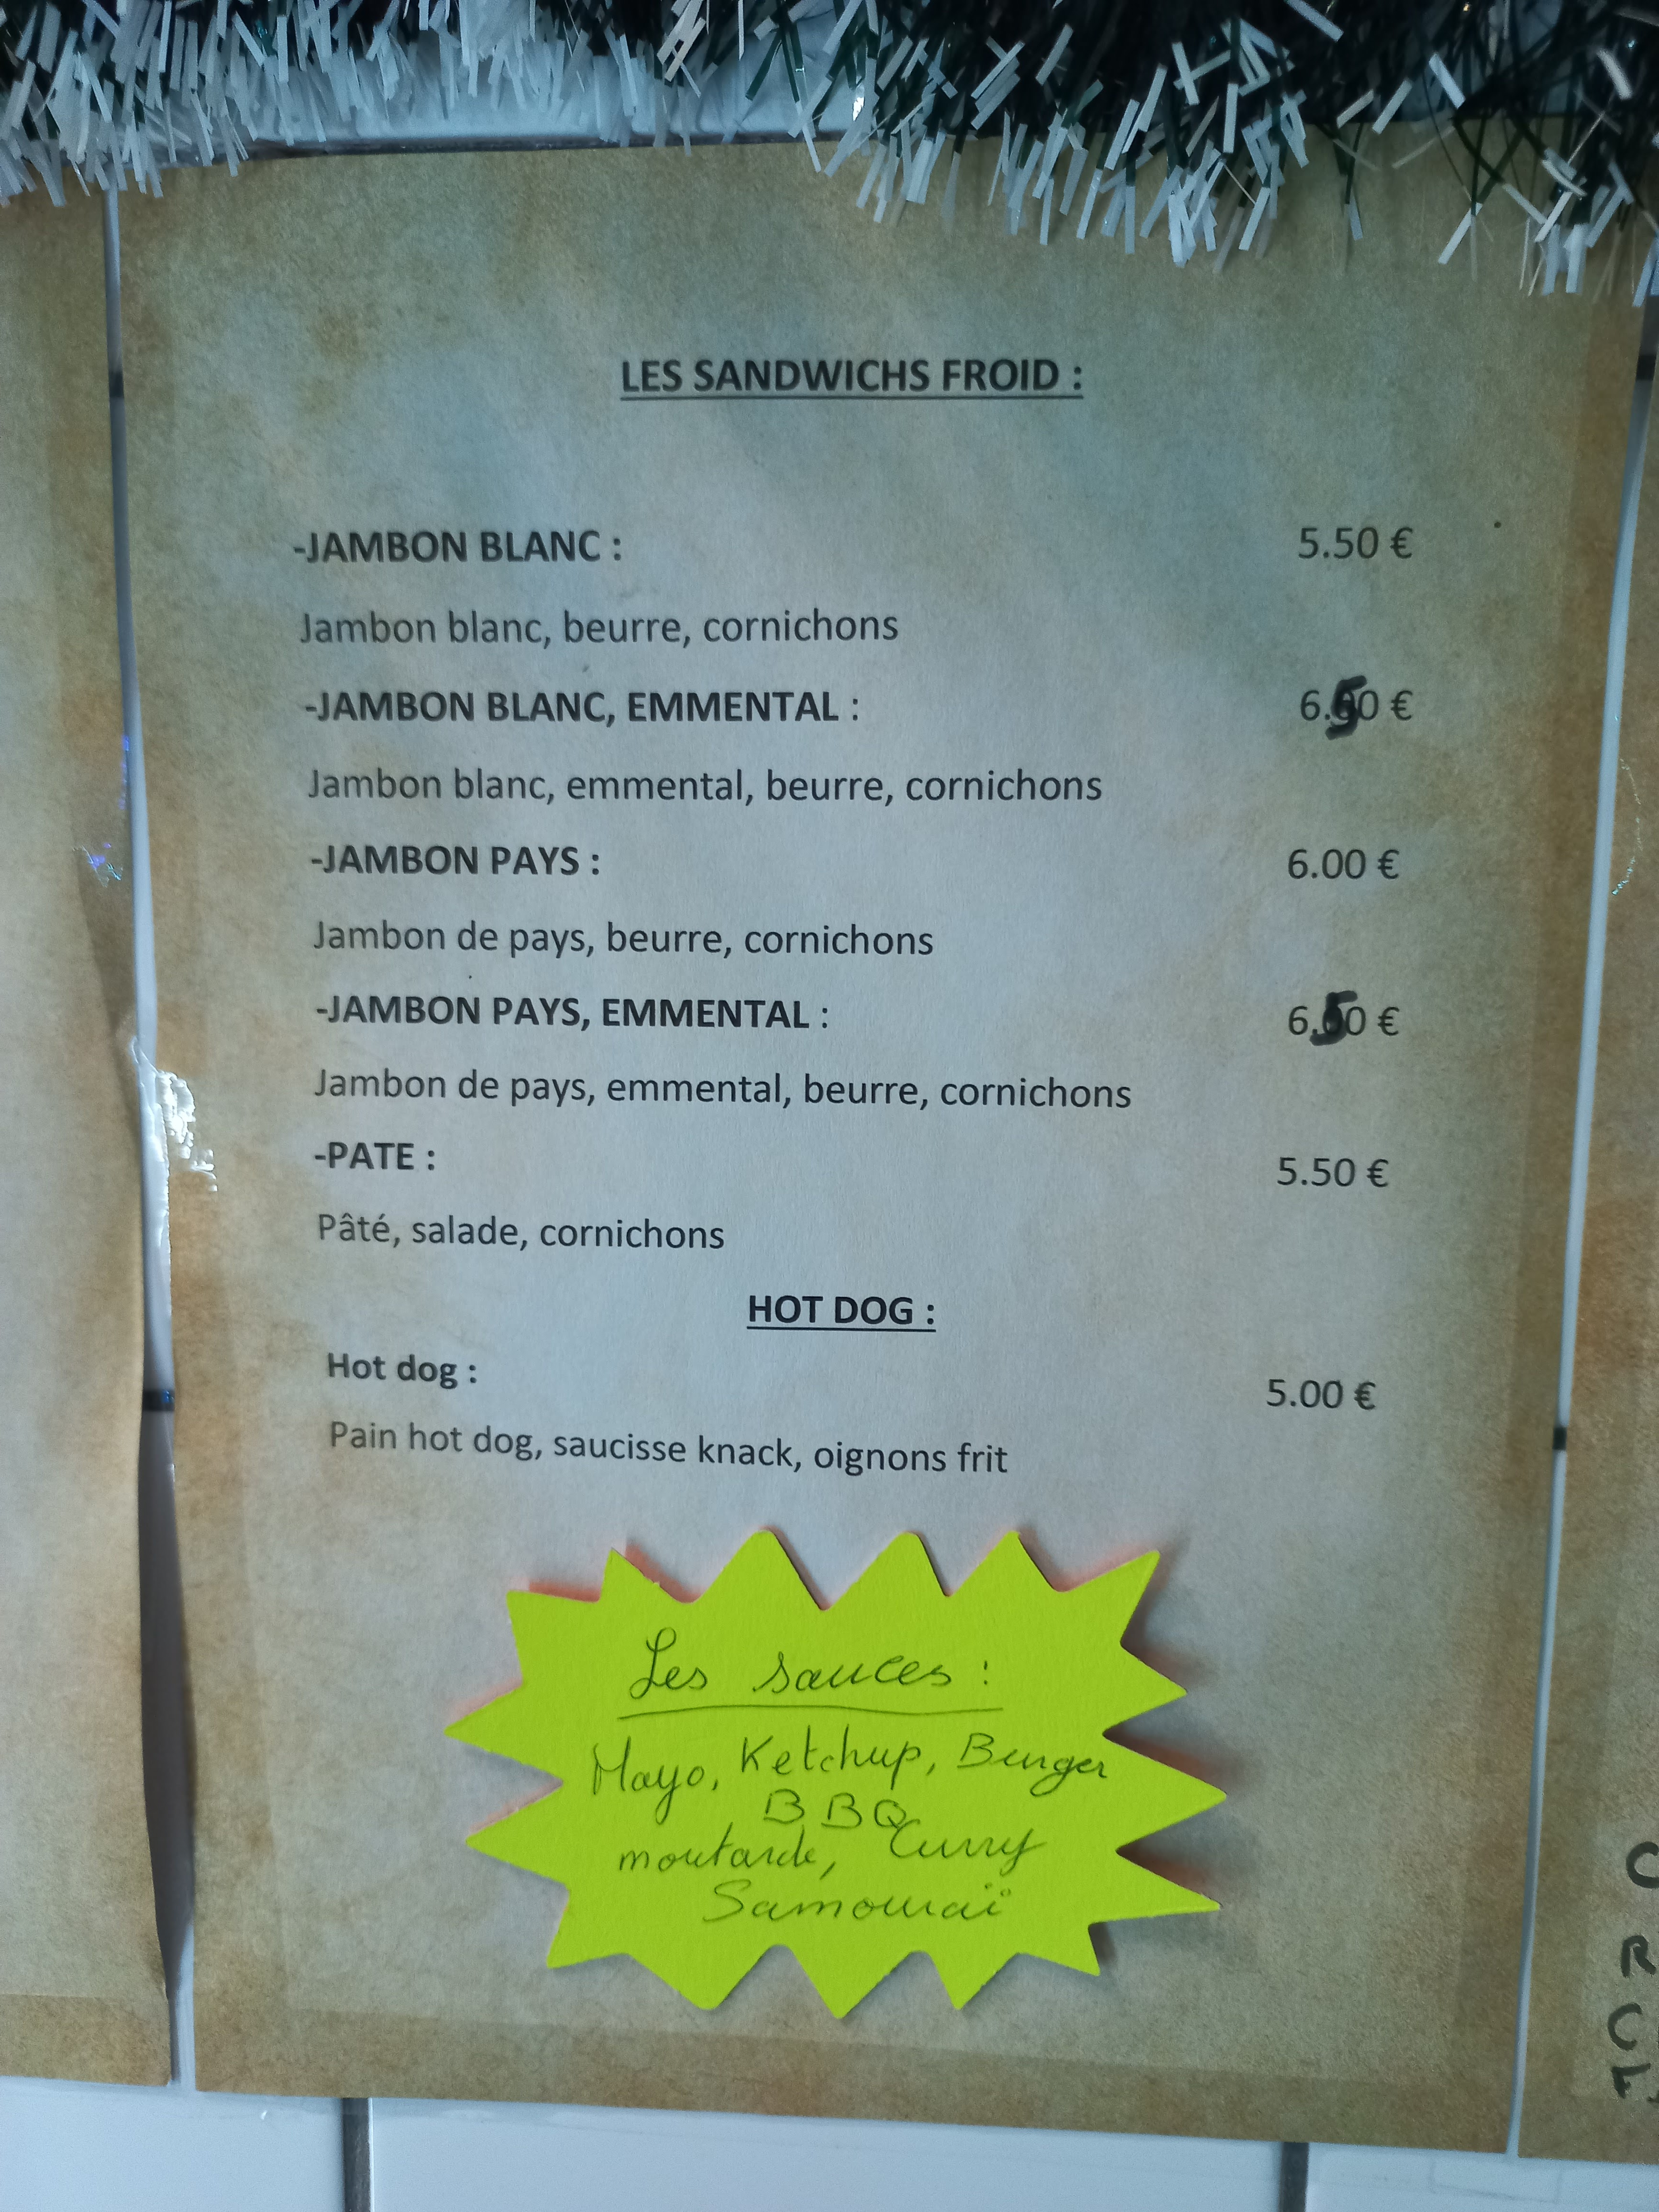 LES SANDWICHS FROID :
-JAMBON BLANC : 5.50 €
Jambon blanc, beurre, cornichons
-JAMBON BLANC, EMMENTAL : 6.50 €
Jambon blanc, emmental, beurre, cornichons
-JAMBON PAYS : 6.00 €
Jambon de pays, beurre, cornichons
-JAMBON PAYS, EMMENTAL : 6.50 €
Jambon de pays, emmental, beurre, cornichons
-PATE : 5.50 €
Pâté, salade, cornichons
HOT DOG :
Hot dog : 5.00 €
Pain hot dog, saucisse knack, oignons frit
Les sauces :
Mayo, Ketchup, Burger
BBQ
moutarde, Curry
Samouraï